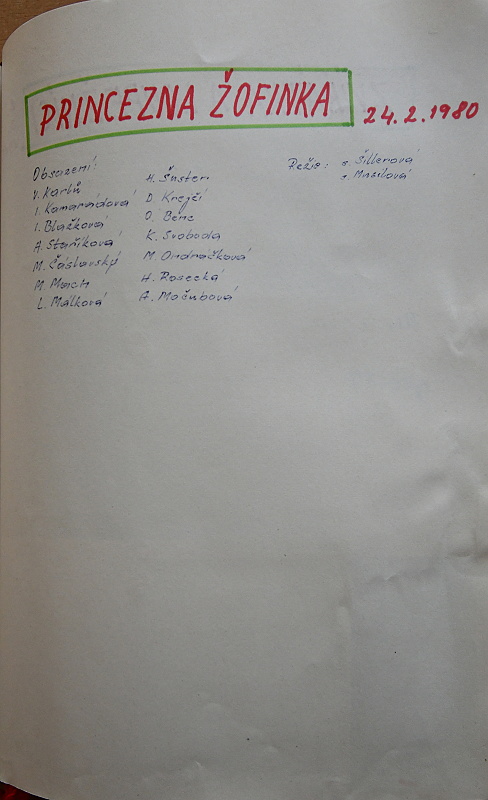 PRINCEZNA ŽOFINKA
24.2.1980
Obsazení:
V. Karlů
I. Kamarádová
I. Blažková
A. Staříková
M. Čáslavský
M. Mach
L. Málková
H. Šuster
D. Krejčí
O. Bénc
K. Svoboda
M. Ondračková
H. Rosecká
A. Močubová
Režie: s. Šillerová
s. Musilová